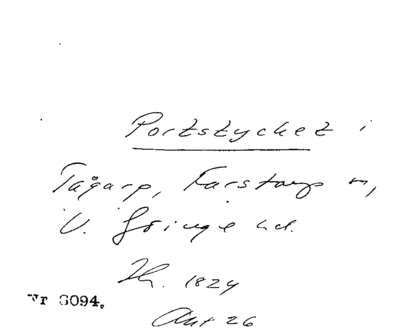 Portstycket i
Tågarp, Färstorp n,
V. Göinge hd.
Th. 1824
Nr 6094.
Ant 26